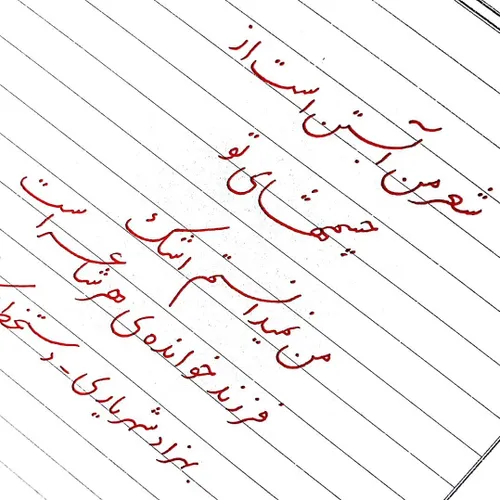 شعر من آبستن است از
چشمهای تو
من نمیدانستم اشک
فرزند خوانده‌ی هر شاعر است
بهزاد شهریاری - دستخط